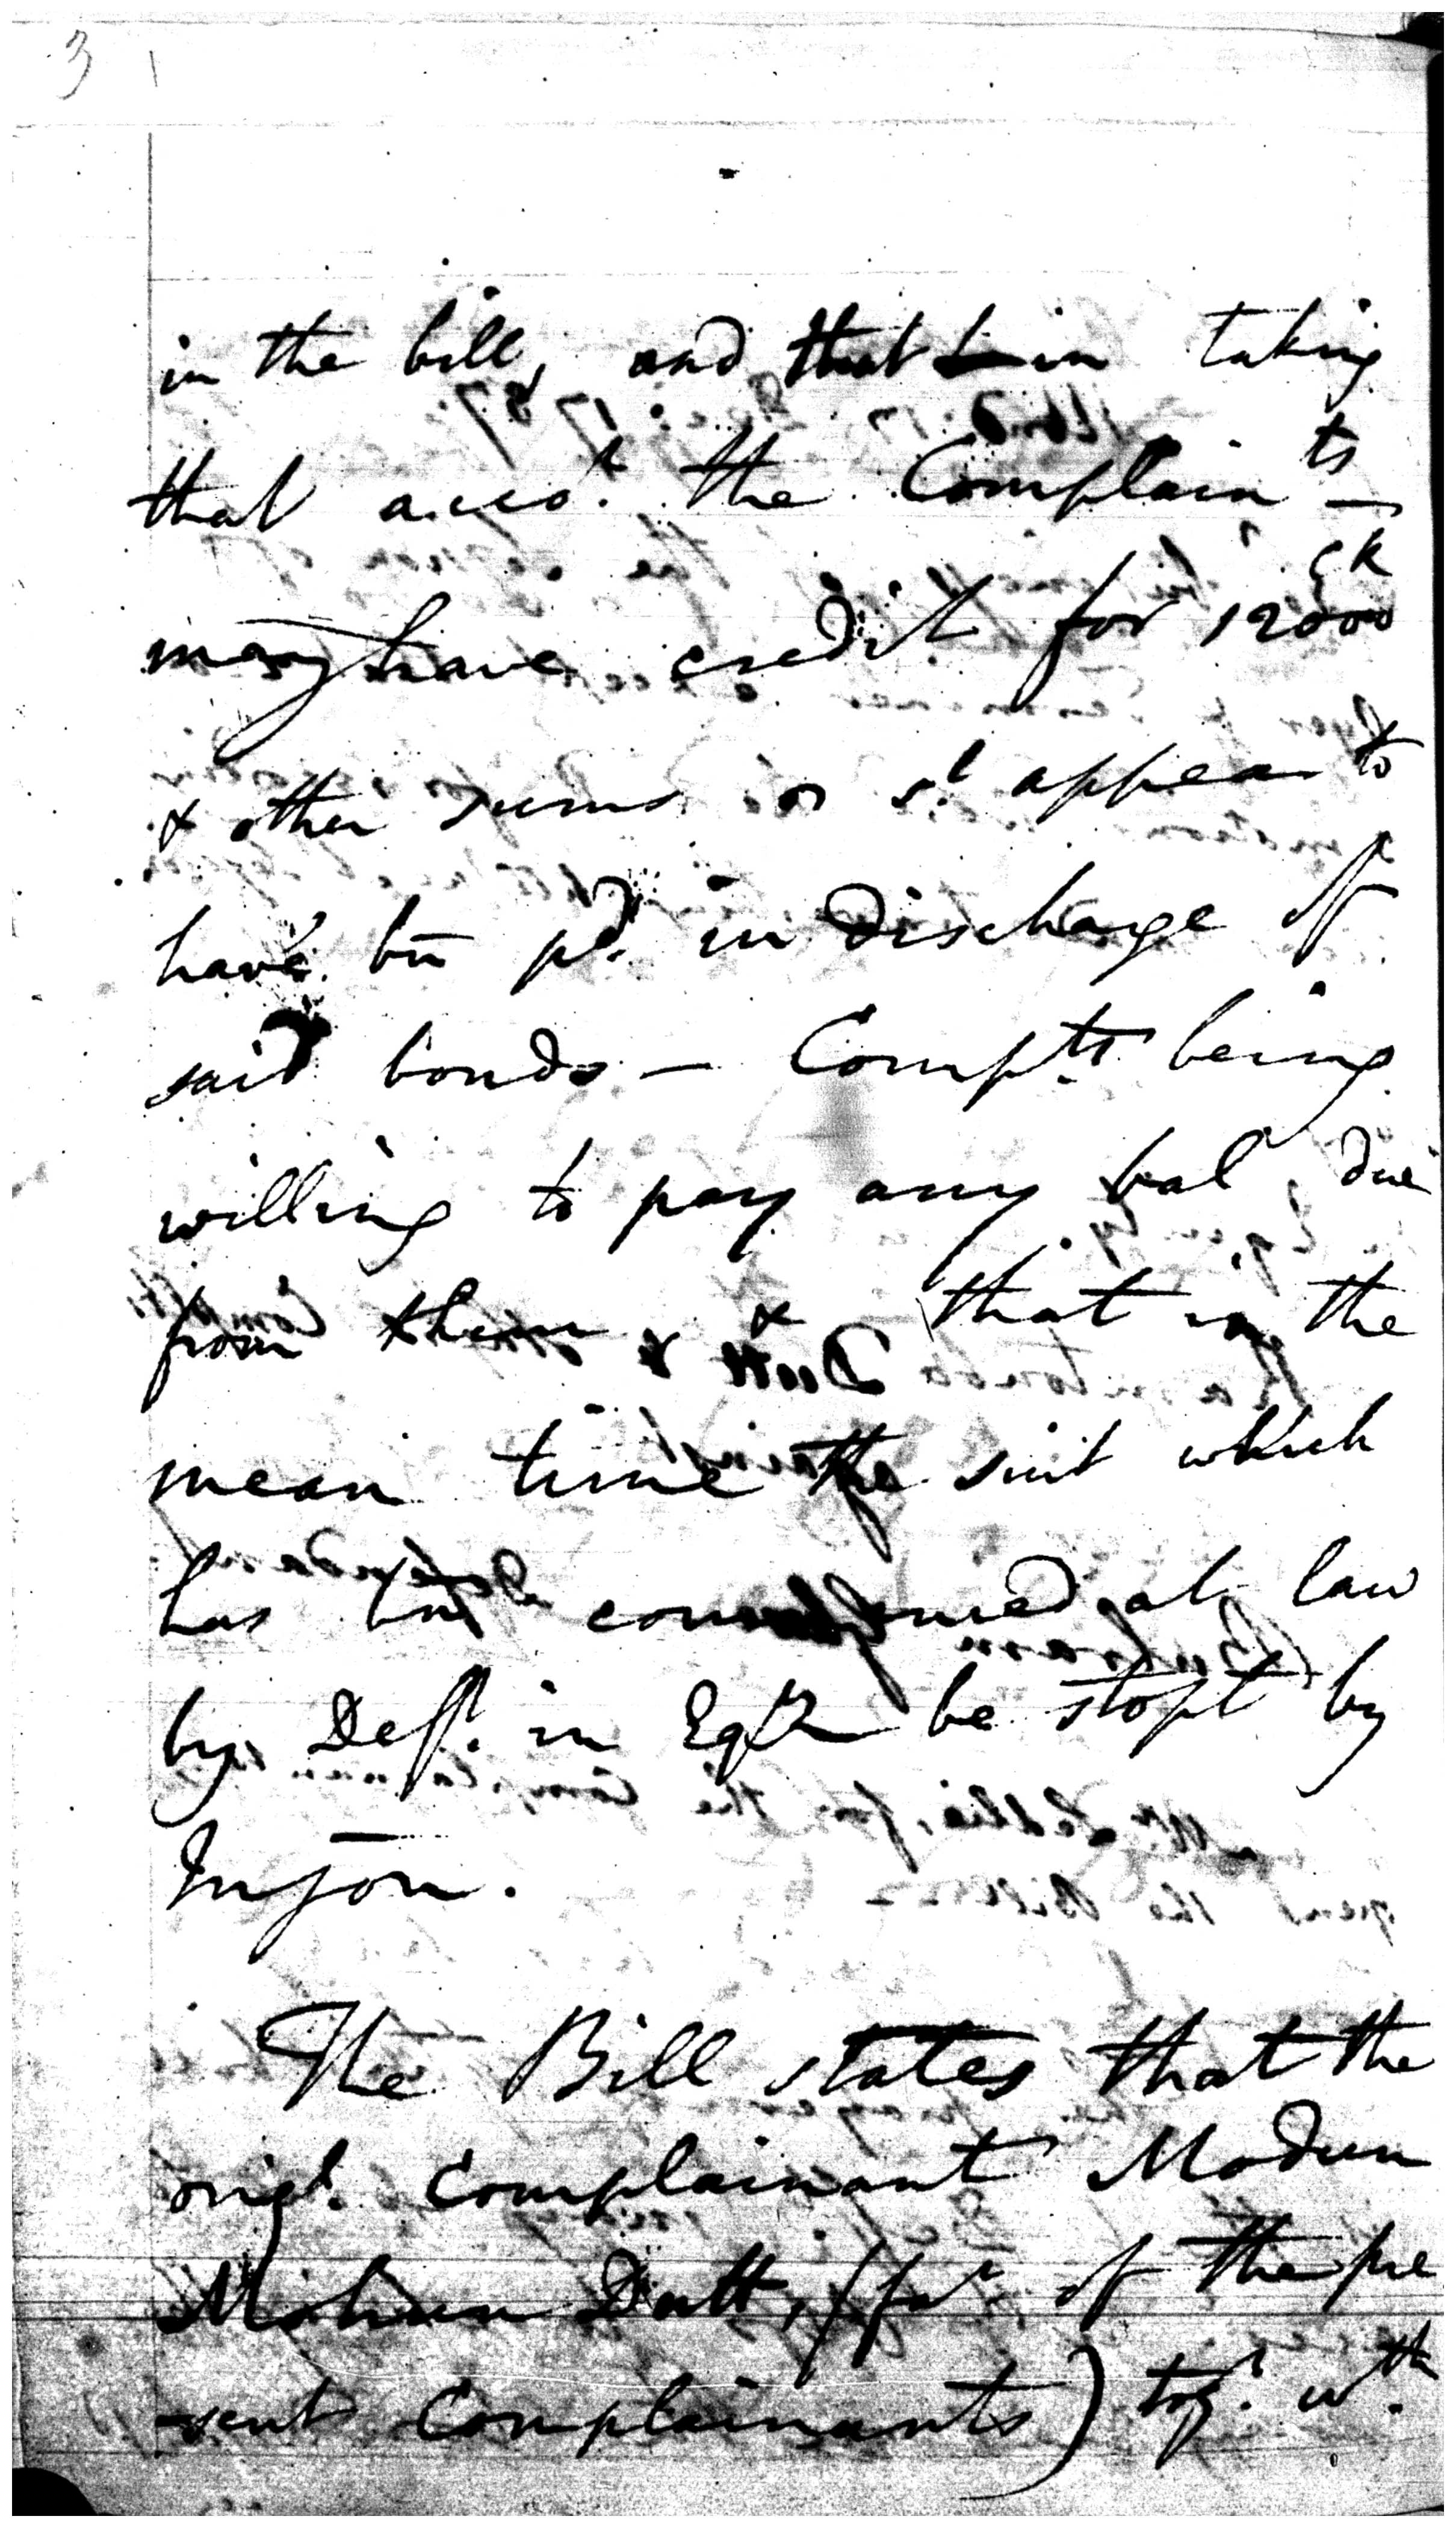 3
in the bill, and that in taking
that acco.t the Complain ts
may have credit for 12000
& other sums as s.d appear to
have bn p.d in discharge of
said bonds — Comp.ts being
willing to pay any bal due
from them & that in the
mean time the suit which
has bn com menced at law
by Def.t in Eq.y be stopt by
Injon.
The Bill states that the
orig.l complainant Modun
Mohun Dutt, (fa.r of the pre
-sent Complainants) tog.r w.th